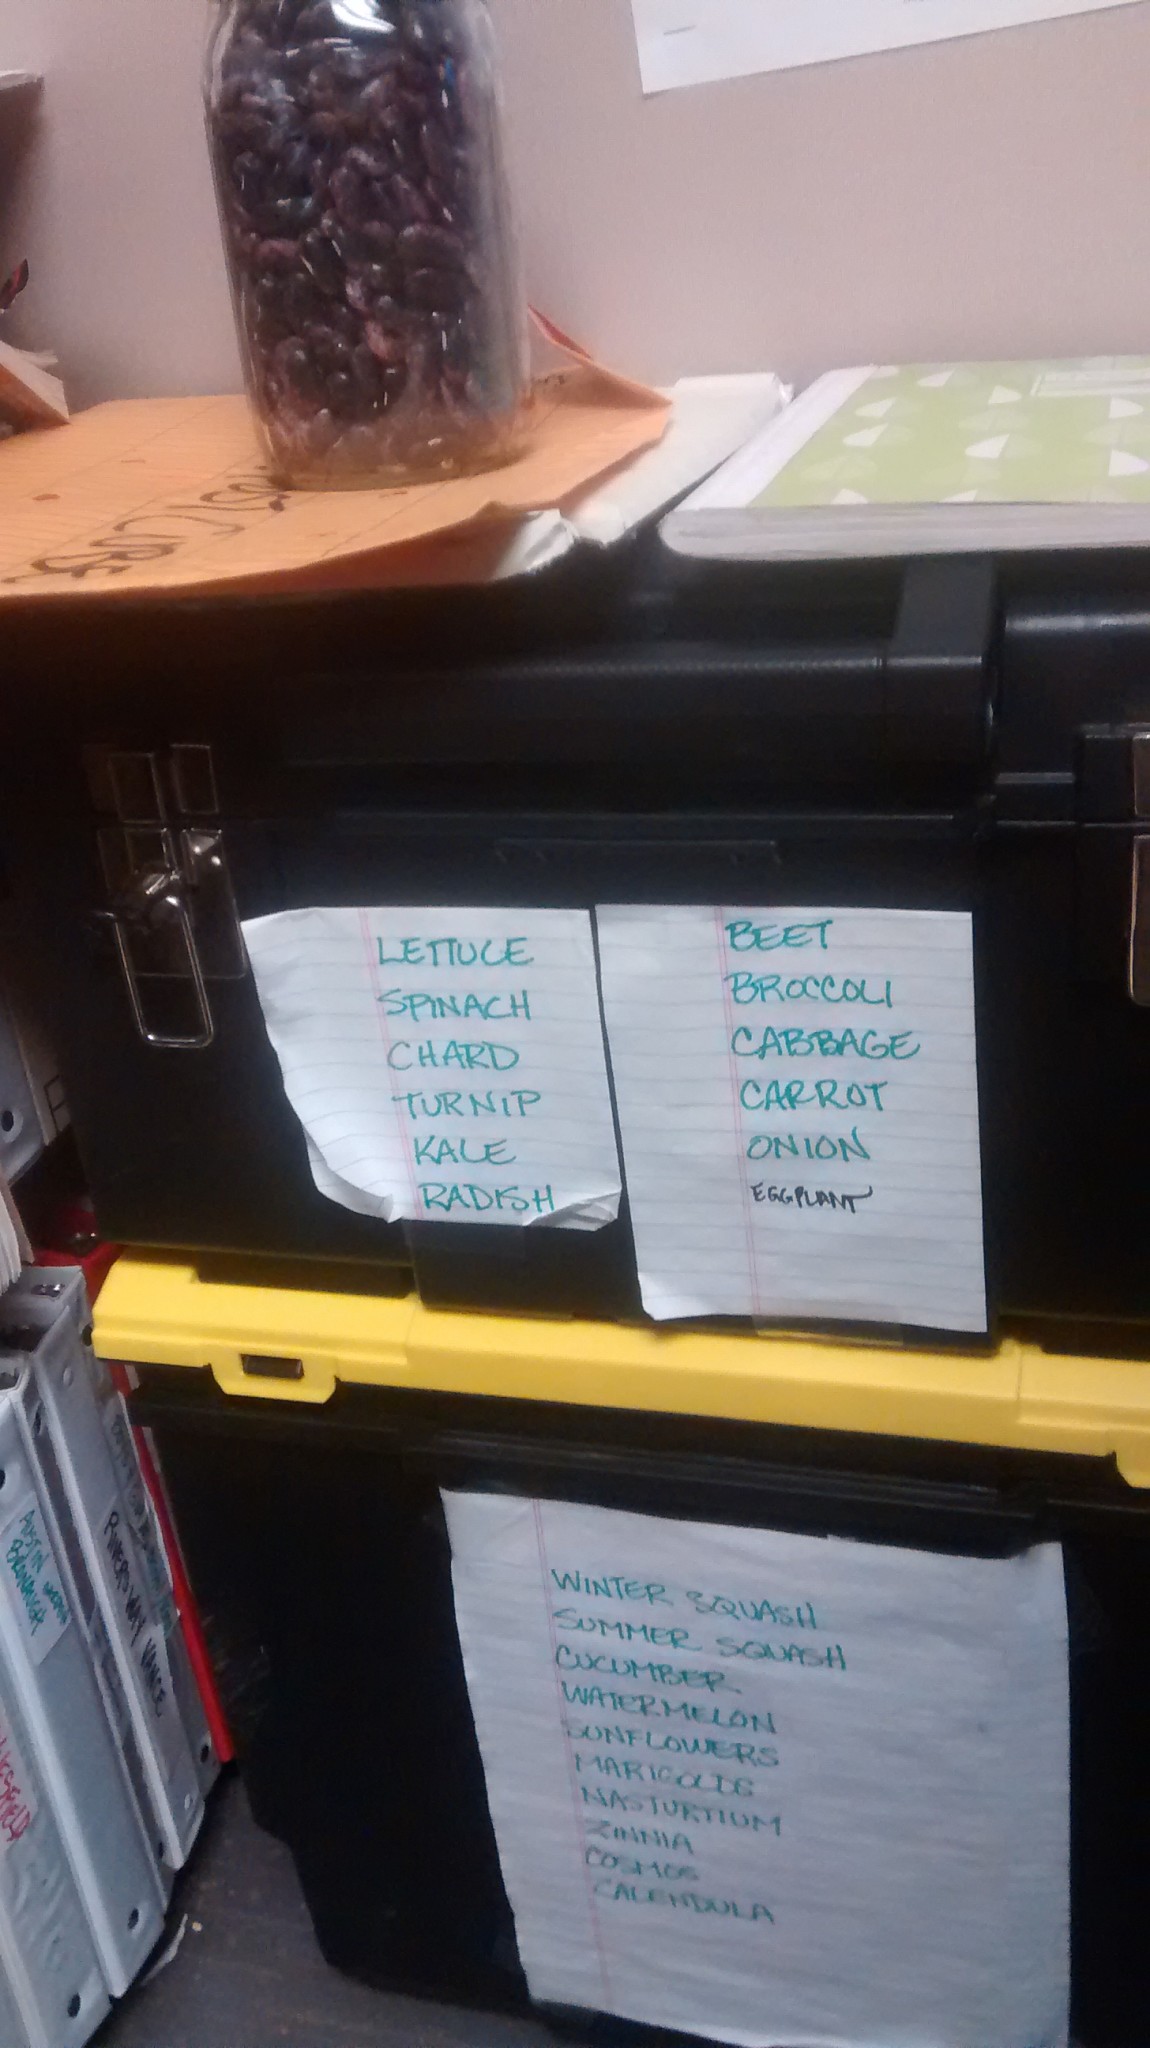 LETTUCE
SPINACH
CHARD
TURNIP
KALE
RADISH
BEET
BROCCOLI
CABBAGE
CARROT
ONION
EGGPLANT
WINTER SQUASH
SUMMER SQUASH
CUCUMBER
WATERMELON
SUNFLOWERS
MARIGOLDS
NASTURTIUM
ZINNIA
COSMOS
CALENDULA
AUSTIN
VANCE